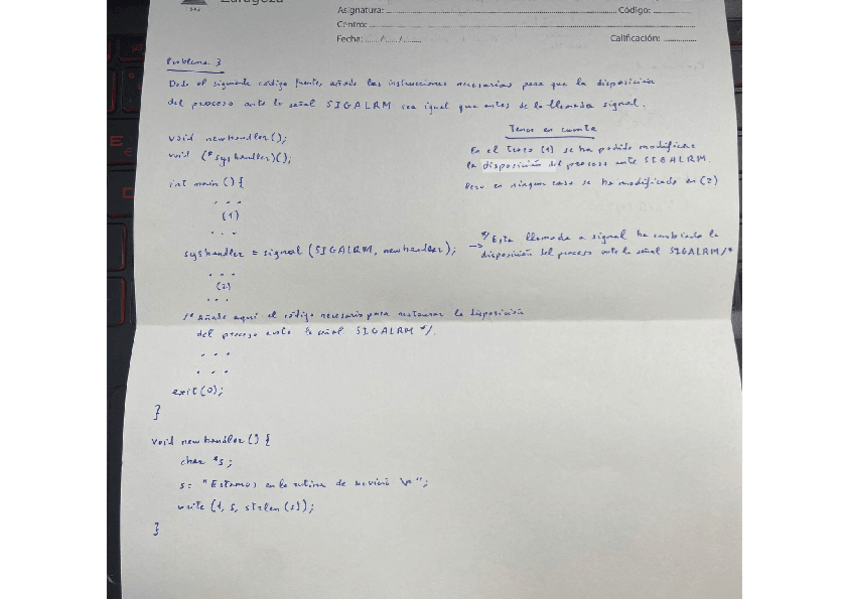 Zaragoza
Asignatura: Código:
Centro:
Fecha: / / Calificación:
Problema 3
Dado el siguiente código fuente, añade las instrucciones necesarias para que la disposición
del proceso ante la señal SIGALRM sea igual que antes de la llamada signal.
void newhandler();
void (*syshandler)();
int main () {
. . .
(1)
. . .
syshandler = signal (SIGALRM, newhandler);
. . .
(2)
. . .
/* Añade aquí el código necesario para restaurar la disposición
del proceso ante la señal SIGALRM */.
. . .
. . .
exit (0);
}
void newhandler () {
char *s;
s = "Estamos en la rutina de servicio \n";
write (1, s, strlen (s));
}
Tener en cuenta
En el trozo (1) se ha podido modificar
la disposición del proceso ante SIGALRM.
Pero en ningun caso se ha modificado en (2)
→ */ Esta llamada a signal ha cambiado la
disposición del proceso ante la señal SIGALRM /*